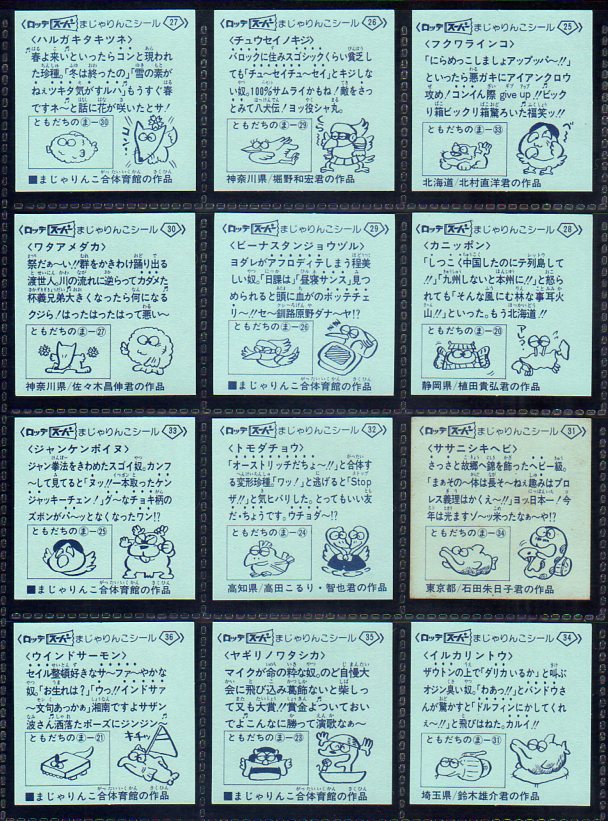 ロッテ スーパー まじゃりんこシール 27
〈ハルガキタキツネ〉
春よ来いといったらコンと現われ
た珍種。「冬は終ったの」「雪の素が
ねェツキタ気がすルハ」もうすぐ春
ですネ〜と話に花が咲いたとサ!
ともだちの ま-30
■まじゃりんこ合体育館の作品
ロッテ スーパー まじゃりんこシール 26
〈チュウセイノキジ〉
バロックに住みスゴシックくらい貧乏し
ても「チュ〜セイチュ〜セイ」とキジしな
い奴。100%サムライかもね/敵をさっ
とみて八犬伝/ヨッ殺シャ丸。
ともだちの ま-29
神奈川県/堀野和宏君の作品
ロッテ スーパー まじゃりんこシール 25
〈フクワラインコ〉
「にらめっこしましょアップッパ〜!!」
といったら悪ガキにアイアンクロウ
攻め/コンイん際 give up!!ビック
り箱ビックリ箱驚ろいた福笑ッ!!
ともだちの ま-33
北海道/北村直洋君の作品
ロッテ スーパー まじゃりんこシール 30
〈ワタアメダカ〉
祭だぁ〜い!!群をかきわけ踊り出る
渡世人。川の流れに逆らってカダメた
杯義兄弟大きくなったら何になる
クジら/はったはったはって悪い〜
ともだちの ま-27
神奈川県/佐々木昌伸君の作品
ロッテ スーパー まじゃりんこシール 29
〈ビーナスタンジョウヅル〉
ヨダレがアフロディテしまう程美
しい奴。「日課は」「昼寝サンス」見つ
められると頭に血がのボッテチェ
リ〜/セ〜釧路原野ダナ〜ヤ!?
ともだちの ま-26
■まじゃりんこ合体育館の作品
ロッテ スーパー まじゃりんこシール 28
〈カニッポン〉
「しつこく中国したのにテ列島して
!!」「九州しないと本州に!!」と怒ら
れても「そんな風にも林な事耳火
山!!」といった。もう北海道!!
ともだちの ま-20
静岡県/植田貴弘君の作品
ロッテ スーパー まじゃりんこシール 33
〈ジャンケンポイヌ〉
ジャン拳法をきわめたスゴイ奴。カンフ
〜して見てると「ヌッ!!一本取ったケン
ジャッキーチェン!」グ〜なチョキ柄の
ズボンがパ〜ッとなくなったワン!?
ともだちの ま-25
■まじゃりんこ合体育館の作品
ロッテ スーパー まじゃりんこシール 32
〈トモダチョウ〉
「オーストリッチだちょ〜!!」と合体す
る変形珍種。「ワッ!」と逃げると「Stop
ザ!!」と気とバリした。とってもいい友
だ・ちょうです。ウチョダ〜!?
ともだちの ま-24
高知県/高田こるり・智也君の作品
ロッテ スーパー まじゃりんこシール 31
〈ササニシキヘビ〉
さっさと故郷へ錦を飾ったヘビー級。
「まぁその〜体は長そ〜ねぇ趣みはプロ
レス義理はかくえ〜!!」ヨッ日本一/今
年は光ますゾ〜ッ米ったなぁ〜や!?
ともだちの ま-34
東京都/石田朱日子君の作品
ロッテ スーパー まじゃりんこシール 36
〈ウインドサーモン〉
セイル整頓好きなサ〜ファ〜やかな
奴。「お生れは?」「ウッ!!インドサァ
〜文句あっかぁ」湘南ですよサザン
波さん洒落たポーズにジンジン〜
ともだちの ま-21
キキャッ
■まじゃりんこ合体育館の作品
ロッテ スーパー まじゃりんこシール 35
〈ヤギリノワタシカ〉
マイクが命の粋な奴。のど自慢大
会に飛び込み葛飾ないと柴しっ
て又も大賞!!賞金よついておい
でよこんなに勝って演歌なぁ〜
ともだちの ま-23
■まじゃりんこ合体育館の作品
ロッテ スーパー まじゃりんこシール 34
〈イルカリントウ〉
ザウトンの上で「ダリカいるか」と叫ぶ
オジン臭い奴。「わぁっ!!」とパンドウさ
んが驚かすと「ドルフィンにかしてくれ
ぇ〜!!」と飛びはねた。カルイ!!
ともだちの ま-31
埼玉県/鈴木雄介君の作品